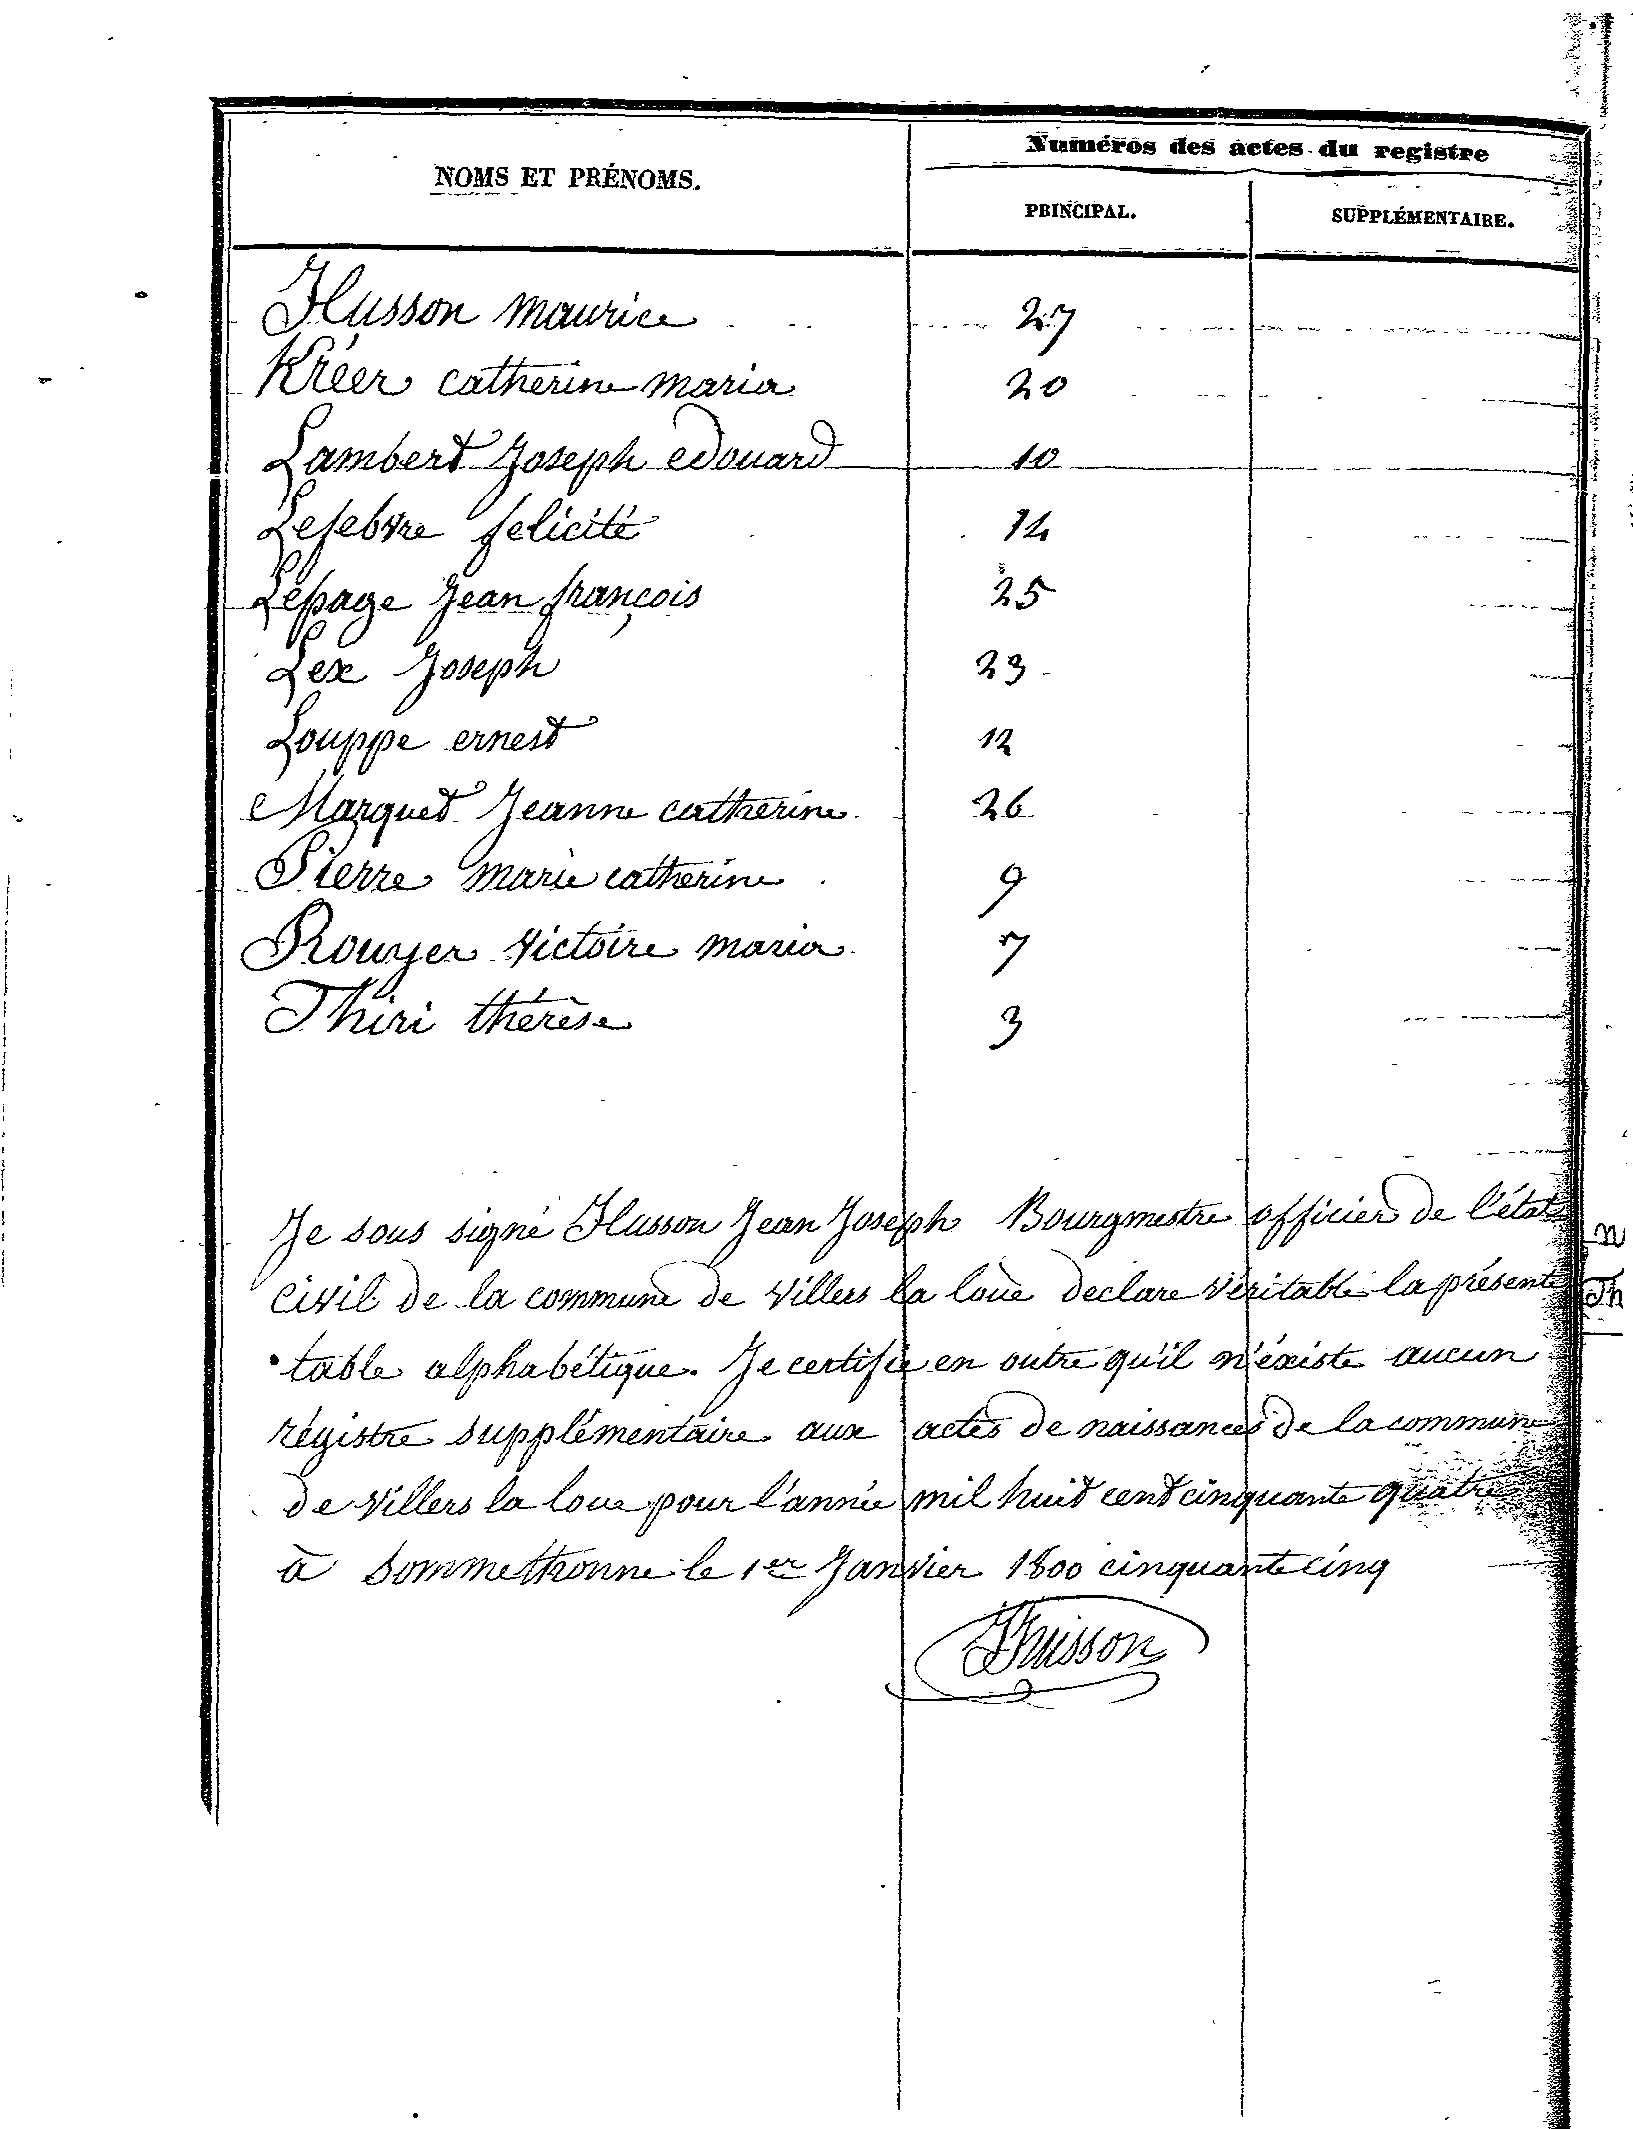 Numéros des actes du registre
NOMS ET PRÉNOMS.
PRINCIPAL. SUPPLÉMENTAIRE.
Husson Maurice 27
Kréer catherine maria 20
Lambert Joseph edouard 10
Lefebvre felicité 14
Lepage Jean françois 25
Lex Joseph 23
Louppe ernest 12
Marquet Jeanne catherine 26
Pierre marie catherine 9
Rouyer victoire maria 7
Thiri thérèse 3
Je sous signé Husson Jean Joseph Bourgmestre officier de l'état
civil de la commune de Villers la loue declare véritable la présente
table alphabétique. Je certifie en outre qu'il n'éxiste aucun
régistre supplémentaire aux actes de naissances de la commune
de Villers la loue pour l'année mil huit cent cinquante quatre
à Sommethonne le 1er Janvier 1800 cinquante cinq
Husson